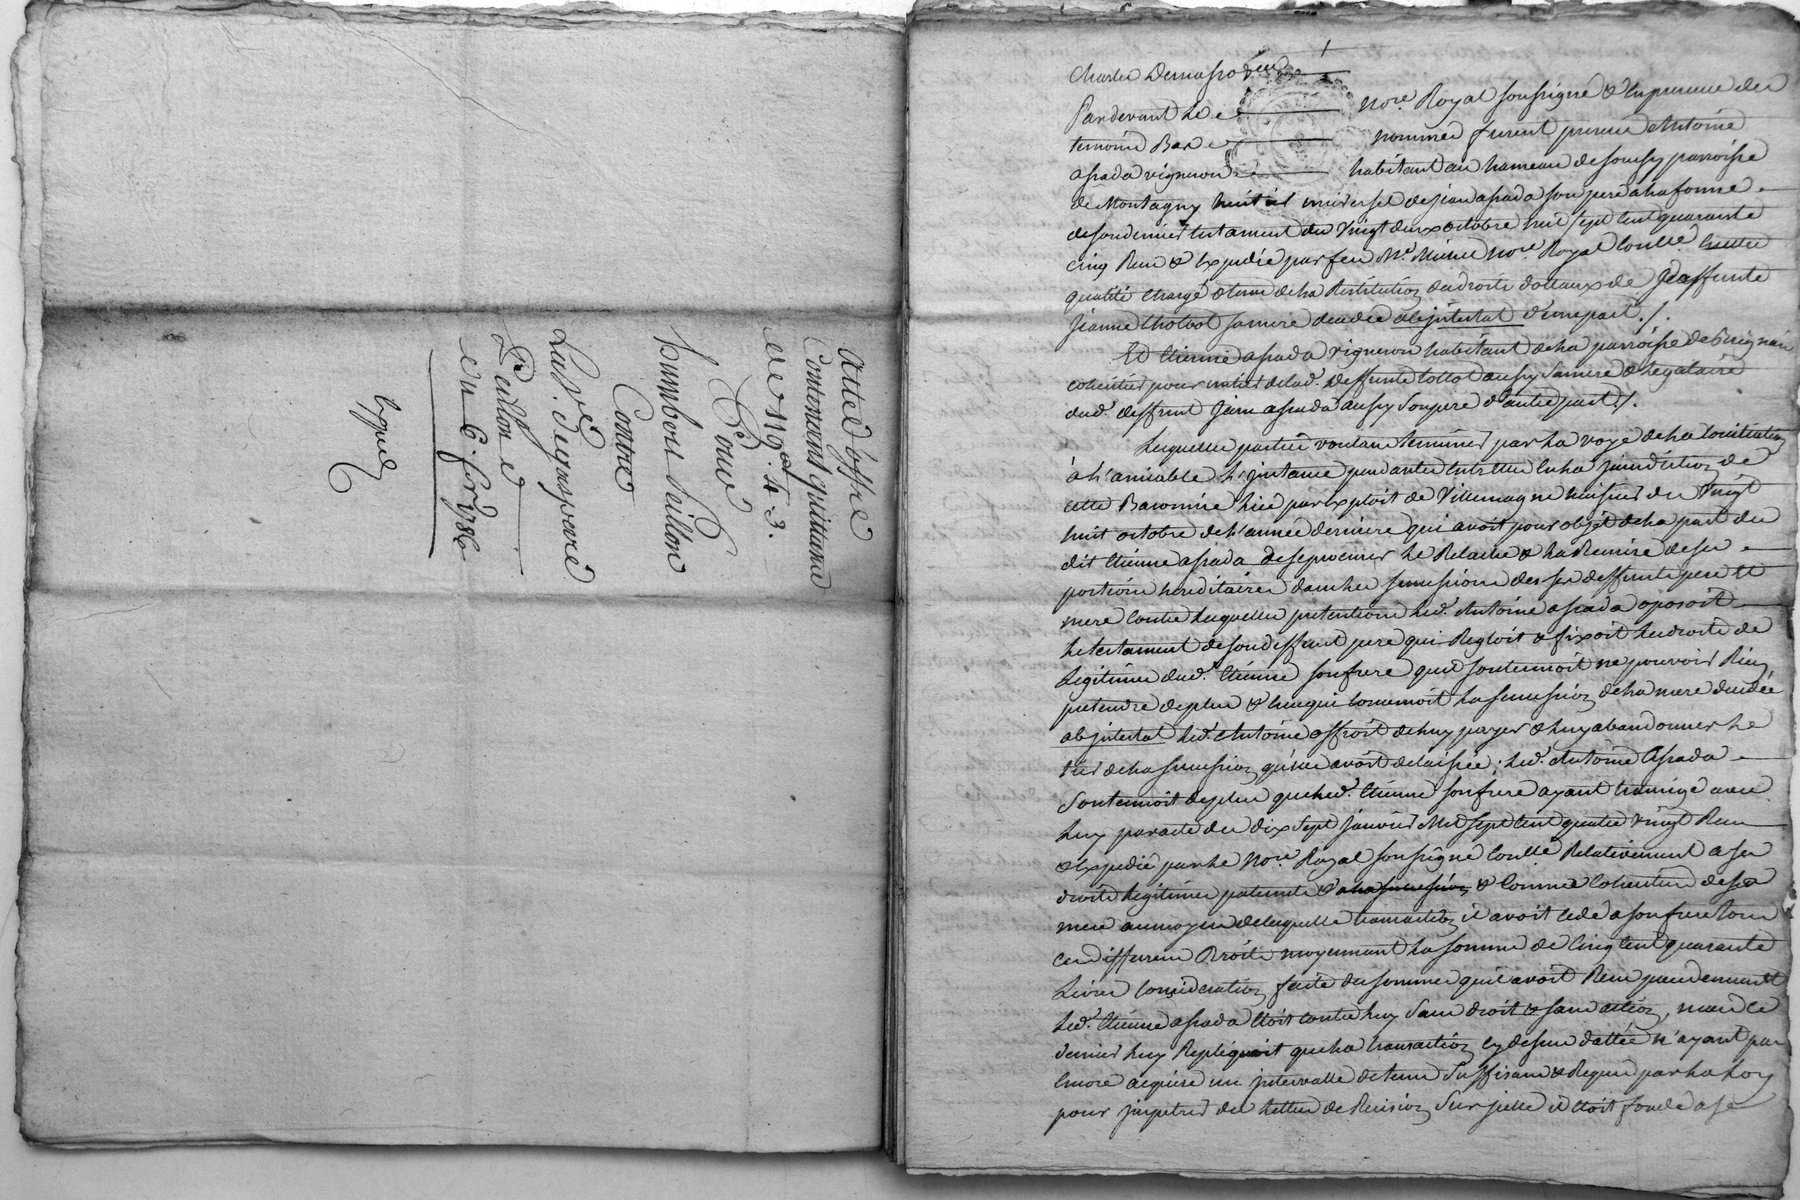 acte d'offre
Contenant quittance
de 119#. 4. 3.
Pour
humbert Pillon
Contre
La ve. 
Pillon
du 6. fr 1786
1
Charles
Pardevant le nore. Royal soussigné & en presence des
temoins Bas nommés furent presens Antoine
assada vigneron habitant au hameau de soucy parroisse
de Montagny héritier universel de jean assada son pere a la forme
de son dernier testament du vingt deux octobre mil sept cent quarante
cinq Recu & Expedié par feu Me. nore. Royal Contlé laditte
qualité chargé de la Restitution des droits dottaux de deffunte
jeanne Chollot sa mere decedée abjntestat d'une part ./.
Et Etienne assada vigneron habitant de la parroisse de Brignais
coheritier pour un tiers de lad. deffunte sa mere & legataire
dud. deffunt jean assada aussy son pere d'autre part ./.
Lesquelles parties voulant terminer par la voye de la Conciliation
à l'amiable l'jnstance pendante entr'elles en la jurisdiction de
cette Baronnie liée par Exploit de Villemagne huissier du vingt
huit octobre de l'année derniere qui avoit pour objet de la part du
dit Etienne assada de se procurer le Relache & la Remise de ses
portions hereditaires dans les successions de ses deffunts pere et
mere contre lesquelles pretentions led. Antoine assada oposoit
le testament de son deffunt pere qui Regloit & fixoit les droits de
legitime dud. Etienne son frere quil soutennoit ne pouvoir Rien
pretendre de plus & en ce qui concernoit la succession de la mere decedée
abjntestat led. Antoine offroit de luy payer & luy abandonner le
tiers de la succession qu'elle avoit delaissée; led. Antoine assada
soutennoit de plus que led. Etienne son frere ayant transigé avec
luy par acte du dix sept janvier mil sept cent quatre vingt Recu
& Expedié par le nore. Royal soussigné Contlé Relativement a ses
droits legitimes paternels & a la succession & comme coheritier de sa
mere au moyen de laquelle transaction il avoit cedé a son frere tous
ces differens Droits moyennant la somme de Cinq cent quarante
Livres Consideration faite des sommes quil avoit Recu precedemment
led. Etienne assada etoit contre luy sans droit & sans action, mais ce
dernier luy Repliquoit que la transaction cy dessus dattée n'ayant pas
encore acquise un jntervalle de tems suffisant & Requis par la loy
pour jmpetrer des lettres de Recision sur jcelle il etoit fondé a se